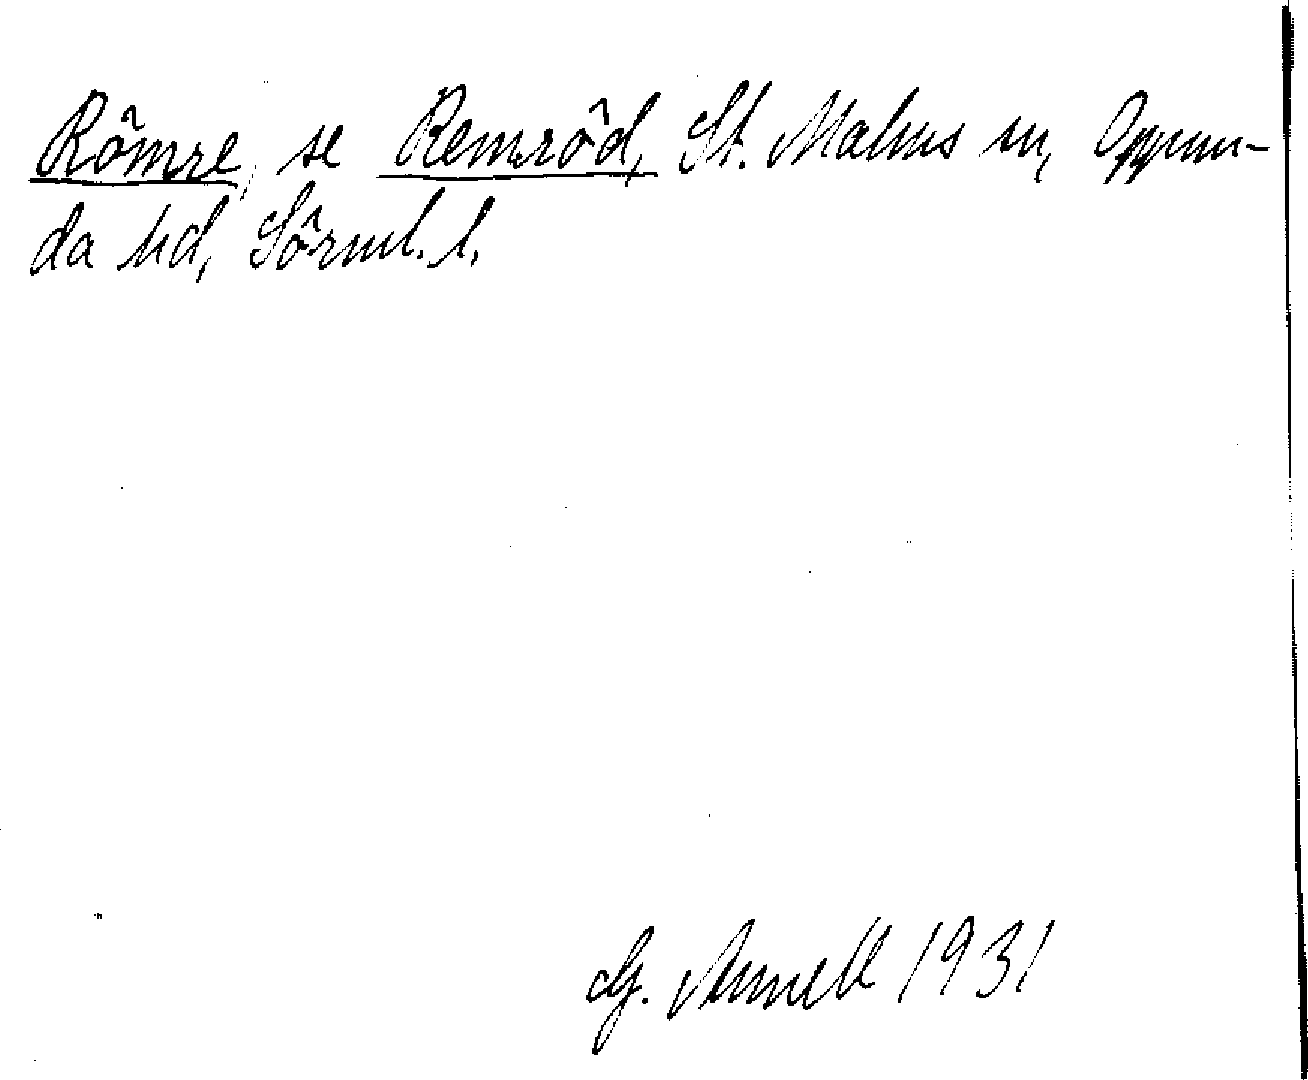 Römre, se Remröd, St. Malms sn, Oppun-
da hd, Sörml. l.
G. Annell 1931